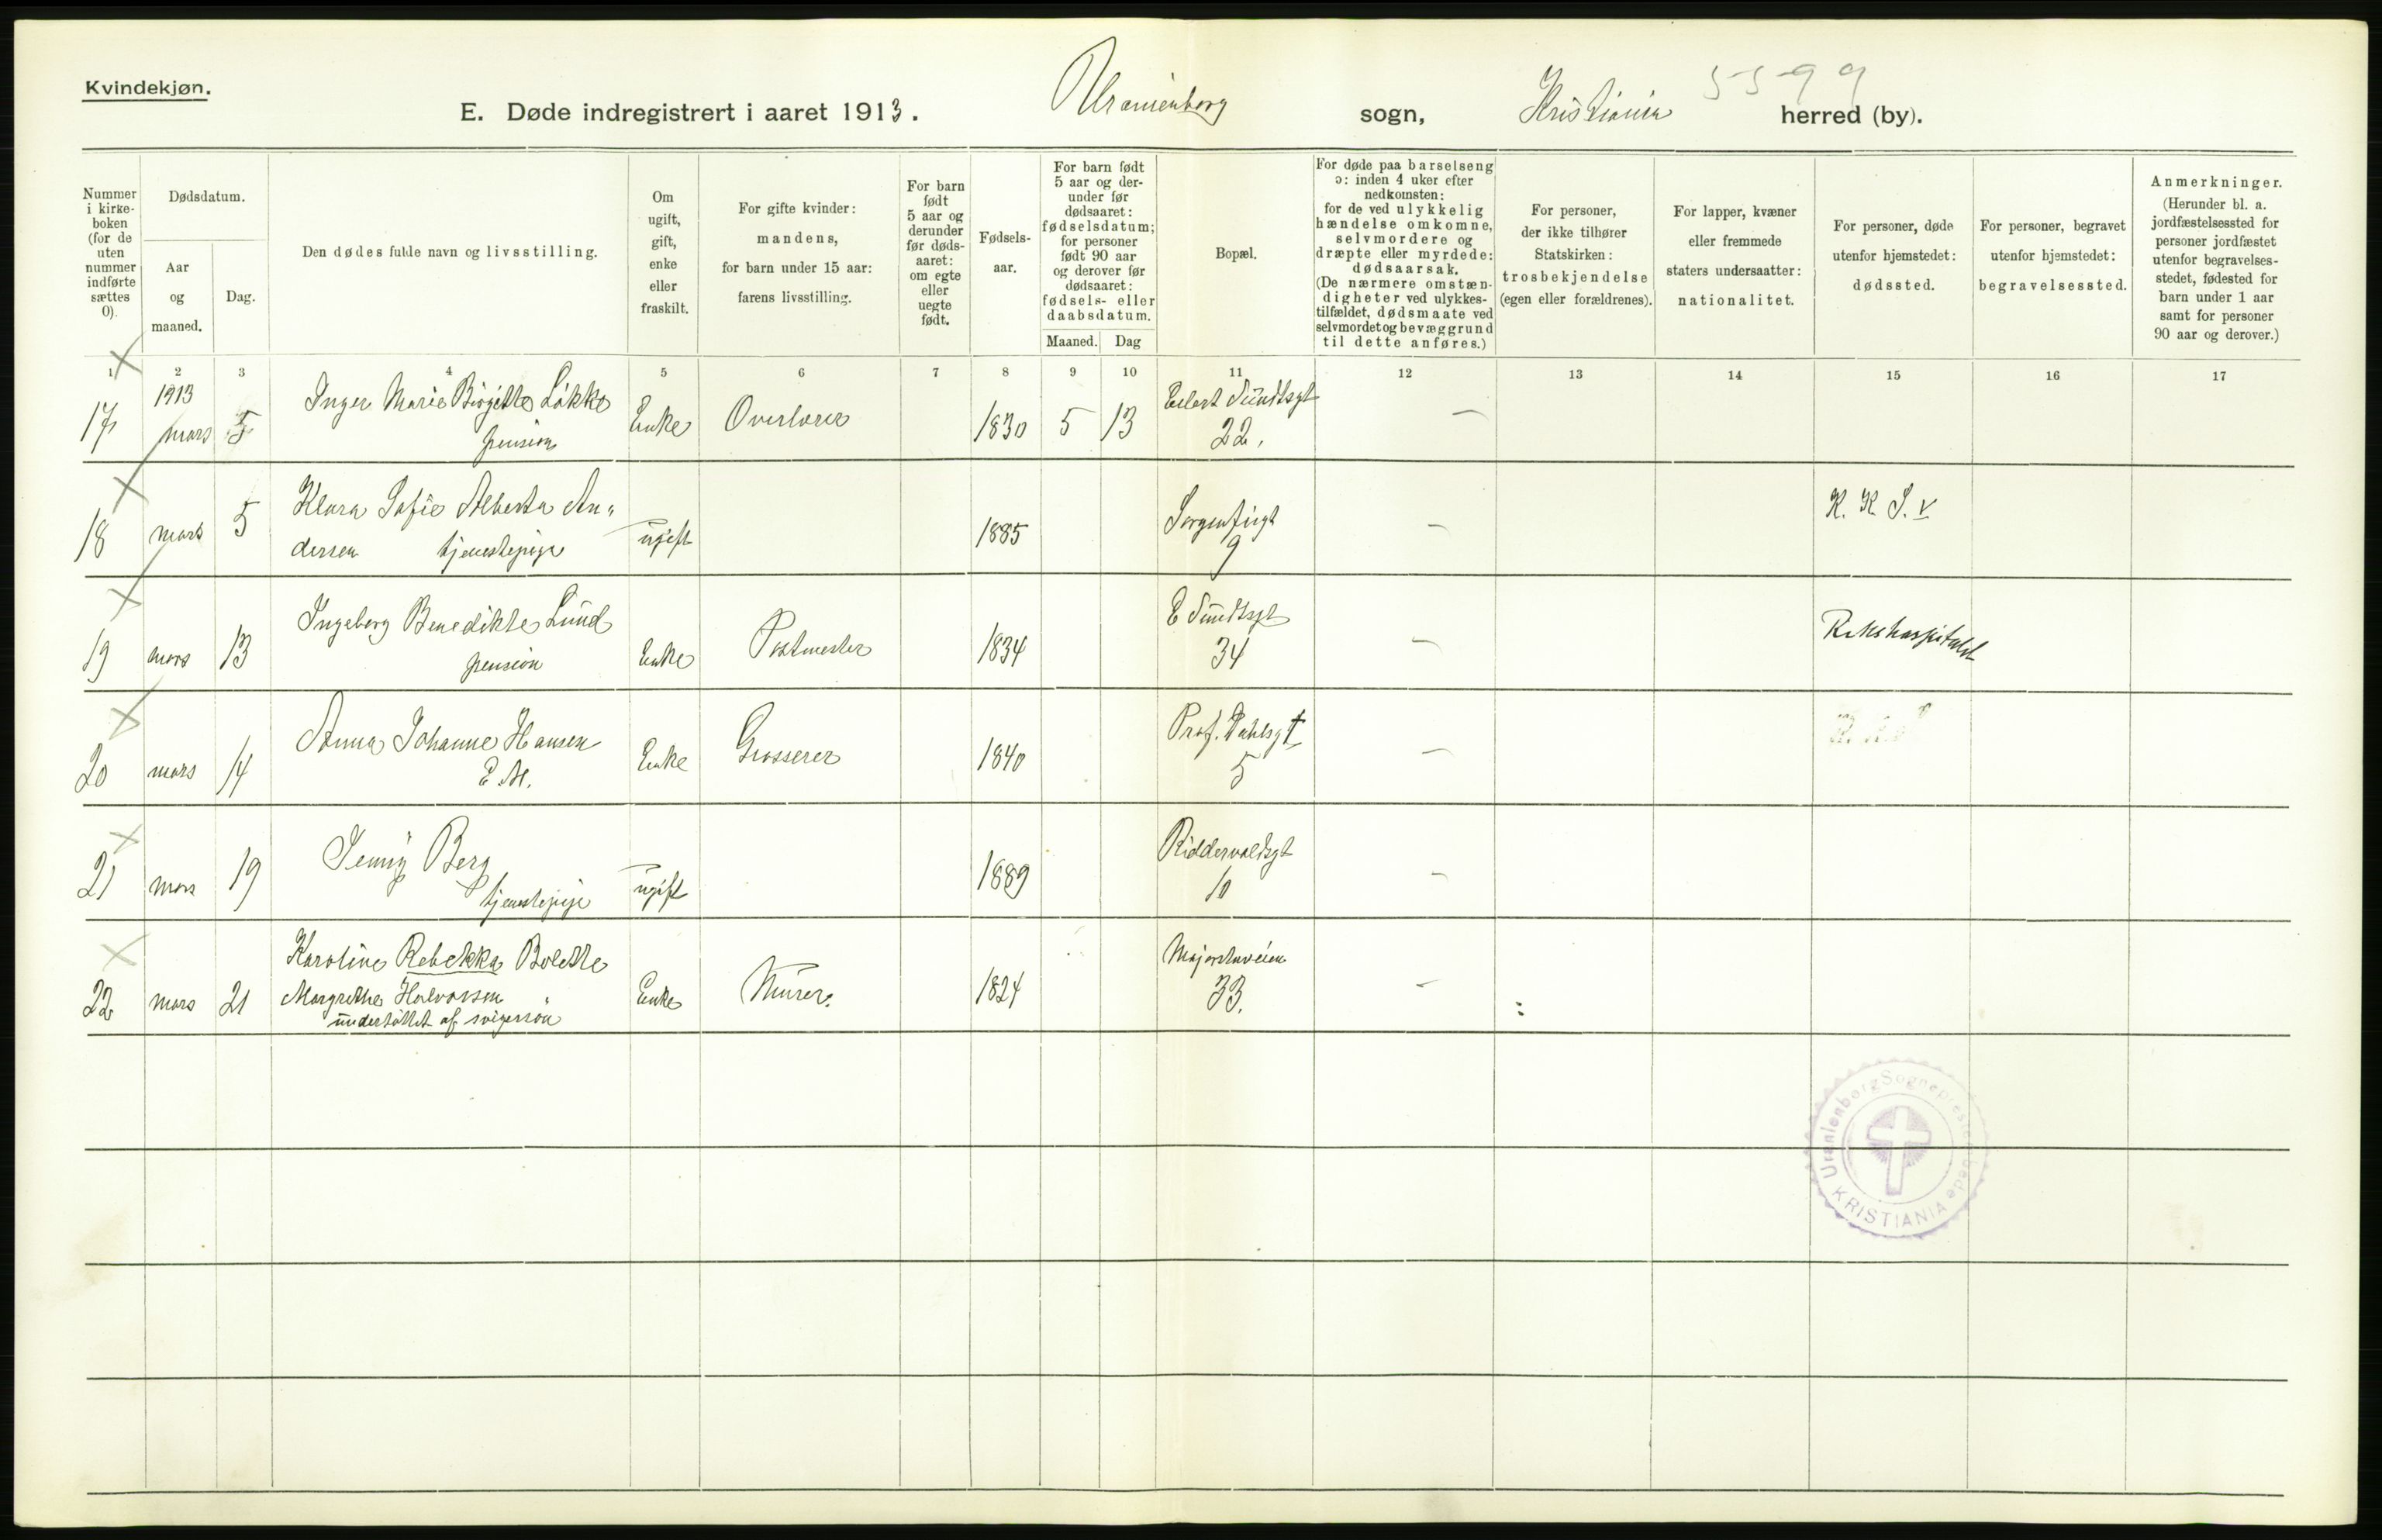 Kvindekjøn.
E. Døde indregistrert i aaret 1913. Uranienborg sogn, Kristiania herred (by).
5599
Nummer
i kirke-
boken
(for de
uten
nummer
indførte
sættes
0).
Dødsdatum.
Aar
og
maaned.
Dag.
Den dødes fulde navn og livsstilling.
Om
ugift,
gift,
enke
eller
fraskilt.
For gifte kvinder:
mandens,
for barn under 15 aar:
farens livsstilling.
For barn
født
5 aar og
derunder
før døds-
aaret:
om egte
eller
uegte
født.
Fødsels-
aar.
For barn født
5 aar og der-
under før
dødsaaret:
fødselsdatum;
for personer
født 90 aar
og derover før
dødsaaret:
fødsels- eller
daabsdatum.
Maaned. Dag
Bopæl.
For døde paa barselseng
ɔ: inden 4 uker efter
nedkomsten:
for de ved ulykkelig
hændelse omkomne,
selvmordere og
dræpte eller myrdede:
dødsaarsak.
(De nærmere omstæn-
digheter ved ulykkes-
tilfældet, dødsmaate ved
selvmordet og bevæggrund
til dette anføres.)
For personer,
der ikke tilhører
Statskirken:
trosbekjendelse
(egen eller forældrenes).
For lapper, kvæner
eller fremmede
staters undersaatter:
nationalitet.
For personer, døde
utenfor hjemstedet:
dødssted.
For personer, begravet
utenfor hjemstedet:
begravelsessted.
Anmerkninger.
(Herunder bl. a.
jordfæstelsessted for
personer jordfæstet
utenfor begravelses-
stedet, fødested for
barn under 1 aar
samt for personer
90 aar og derover.)
1 2 3 4 5 6 7 8 9 10 11 12 13 14 15 16 17
1913
17 mars 5 Inger Marie Birgitte Løkke Enke Overlærer 1830 5 13 Eilert Sundtsgt
pension 22. –
18 mars 5 Klara Sofie Alberta An„ ugift 1885 Sorgenfrigt – K. K. S. v
dersen tjenestepige 9
19 mars 13 Ingeborg Benedikte Lund Enke Postmester 1834 E Sundtsgt – Rikshospitalet
pension 34
20 mars 14 Anna Johanne Hansen Enke Grosserer 1840 Prof. Dahlsgt –
E. M. 5
21 mars 19 Jenny Berg ugift 1889 Riddervoldsgt –
tjenestepige 10
22 mars 21 Karoline Rebekka Bolette Enke Murer. 1824 Majorstuveien –
Margrethe Halvorsen 33.
understøttet af svigersøn
Uranienborg Sogneprestembede
KRISTIANIA